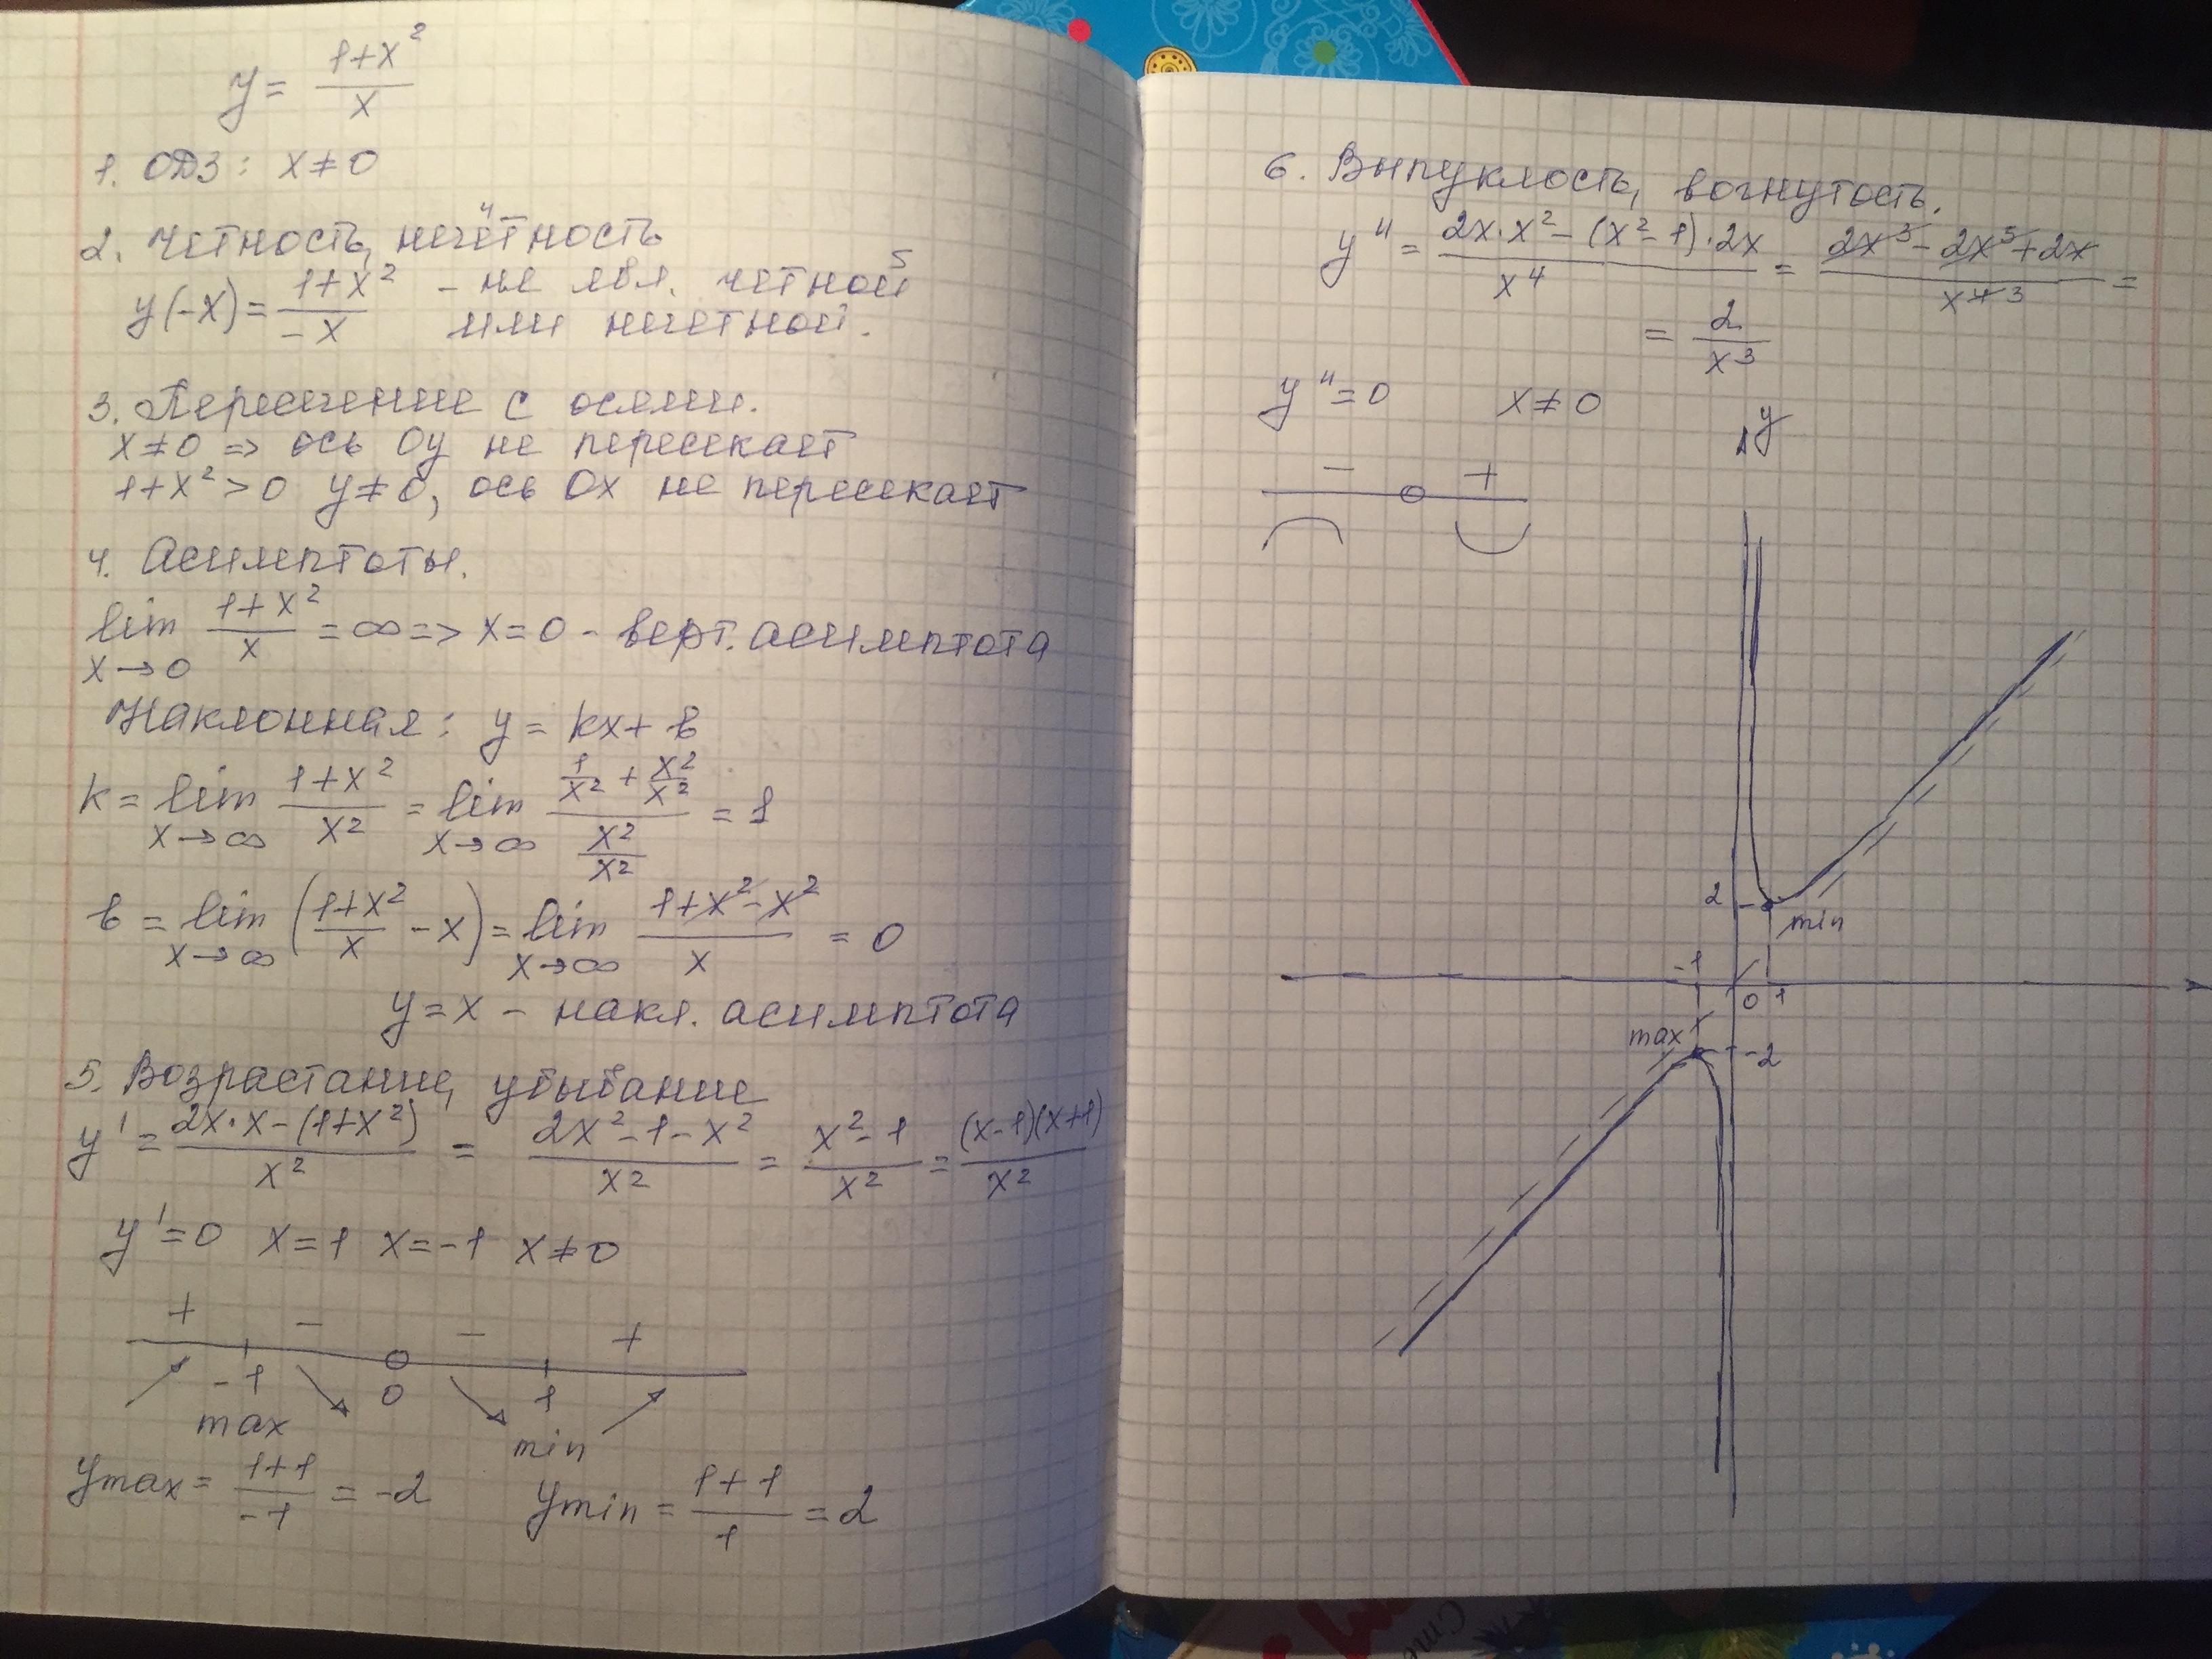 y = (1+x²)/x
1. ОДЗ: x ≠ 0
2. Четность, нечётность
y(-x) = (1+x²)/(-x) - не явл. четной
или нечетной.
3. Пересечение с осями.
x ≠ 0 => ось Oy не пересекает
1+x² > 0 y ≠ 0, ось Ox не пересекает
4. Асимптоты.
lim x→0 (1+x²)/x = ∞ => x = 0 - верт. асимптота
Наклонная: y = kx + b
k = lim x→∞ (1+x²)/x² = lim x→∞ (1/x² + x²/x²)/(x²/x²) = 1
b = lim x→∞ ((1+x²)/x - x) = lim x→∞ (1+x²-x²)/x = 0
y = x - накл. асимптота
5. Возрастание, убывание
y' = (2x·x-(1+x²))/x² = (2x²-1-x²)/x² = (x²-1)/x² = ((x-1)(x+1))/x²
y' = 0 x = 1 x = -1 x ≠ 0
+ - - +
-1 0 1
max min
ymax = (1+1)/(-1) = -2 ymin = (1+1)/1 = 2
6. Выпуклость, вогнутость.
y'' = (2x·x²-(x²-1)·2x)/x⁴ = (2x³-2x³+2x)/x⁴ ³ =
= 2/x³
y'' = 0 x ≠ 0
- +
y
2
min
-1 0 1
max -2